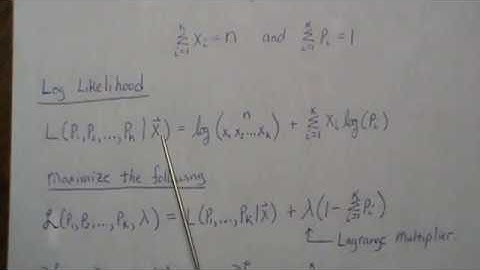 Σᵢ₌₁ᵏ Xᵢ = n and Σᵢ₌₁ᵏ Pᵢ = 1
Log Likelihood
L(P₁,P₂,...,Pₖ|X⃗) = log(n x₁ x₂...xₖ) + Σᵢ₌₁ᵏ Xᵢ log(Pᵢ)
Maximize the following
ℒ(P₁,P₂,...,Pₖ,λ) = L(P₁,...,Pₖ|X⃗) + λ(1-Σᵢ₌₁ᵏ Pᵢ)
Lagrange Multiplier.